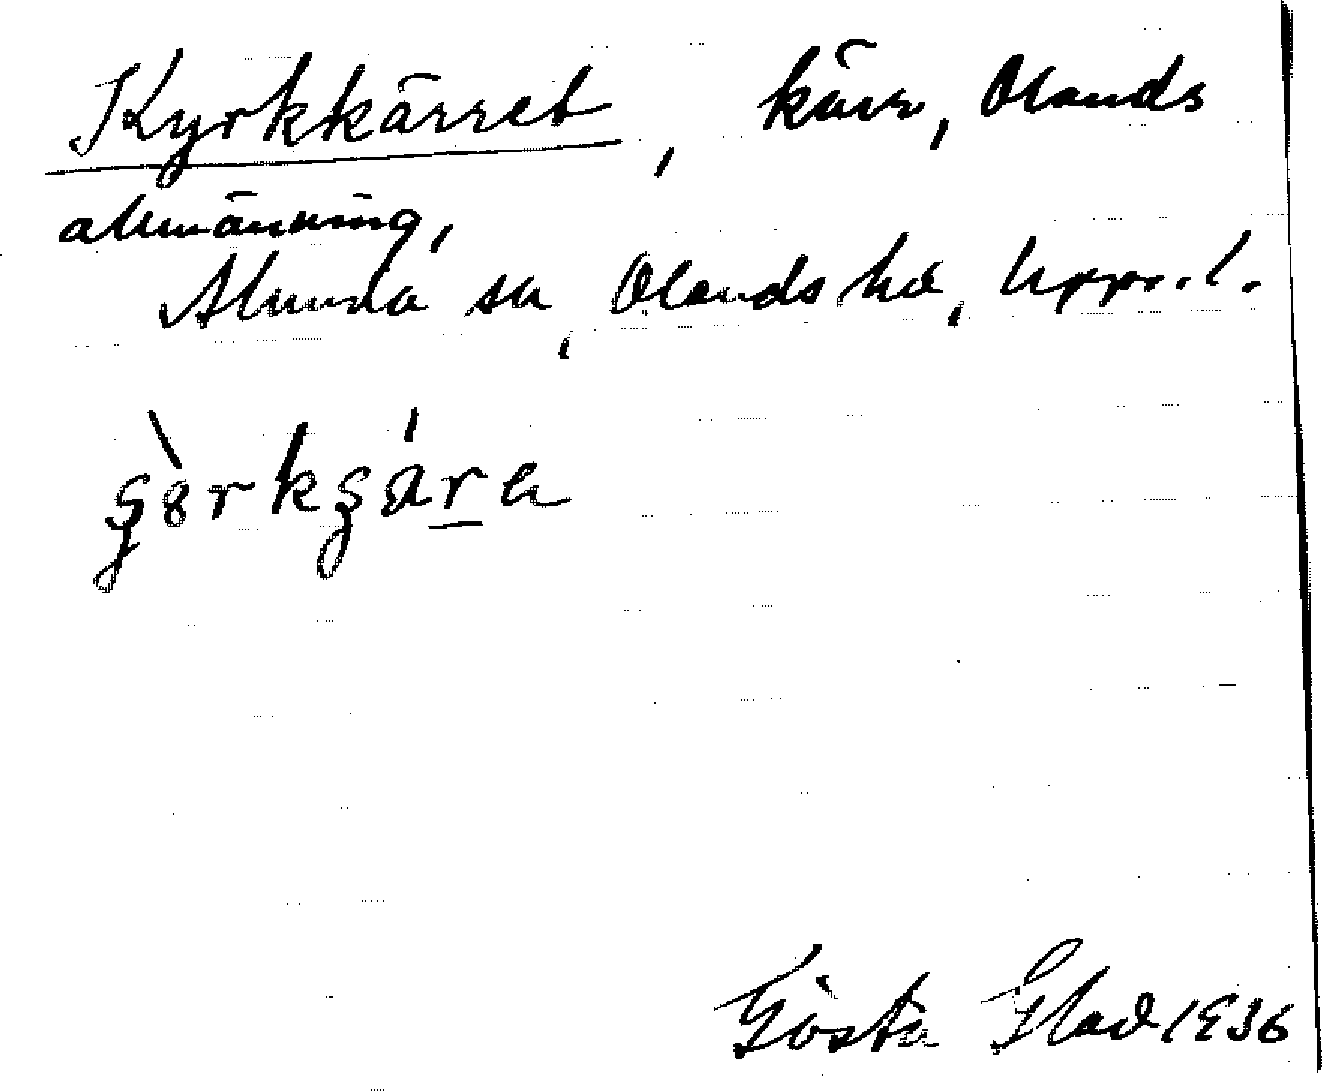 Kyrkkärret, kärr, Olands
allmänning,
Alunda sn, Olands hd, Upps. l.
Gösta Glad 1936